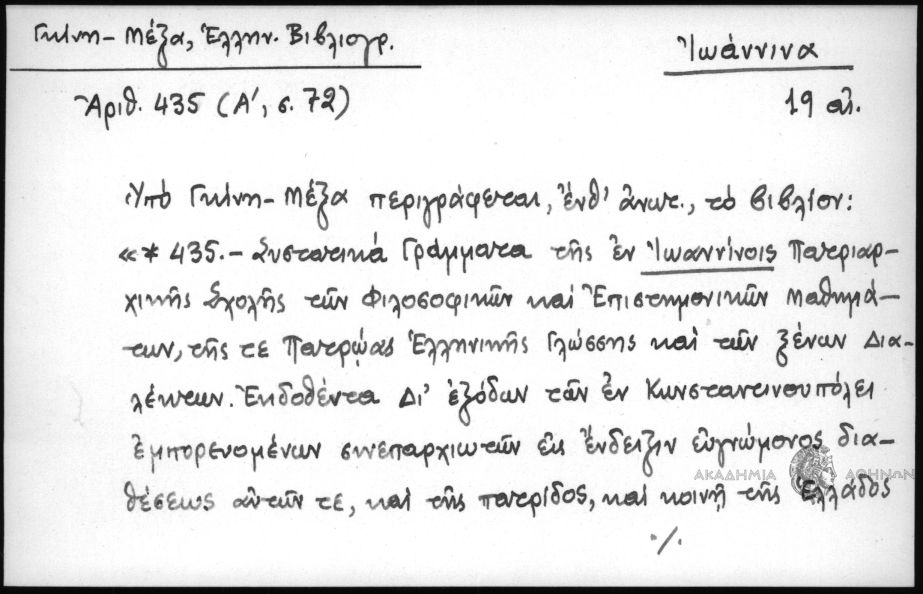 Γκίνη - Μέξα, Ἑλλην. Βιβλιογρ.
Ἰωάννινα
Ἀριθ. 435 (Α', σ. 72)
19 αἰ.
Ὑπό Γκίνη - Μέξα περιγράφεται, ἔνθ' ἀνωτ., τό βιβλίον:
«* 435.- Συστατικά Γράμματα τῆς ἐν Ἰωαννίνοις Πατριαρ-
χικῆς Σχολῆς τῶν Φιλοσοφικῶν καί Ἐπιστημονικῶν Μαθημά-
των, τῆς τε Πατρῴας Ἑλληνικῆς Γλώσσης καί τῶν ξένων Δια-
λέκτων. Ἐκδοθέντα Δι' ἐξόδων τῶν ἐν Κωνσταντινουπόλει
ἐμπορευομένων συνεπαρχιωτῶν εἰς ἔνδειξιν εὐγνώμονος δια-
θέσεως αὐτῶν τε, καί τῆς πατρίδος, καί κοινῇ τῆς Ἑλλάδος
./.
ΑΚΑΔΗΜΙΑ ΑΘΗΝΩΝ